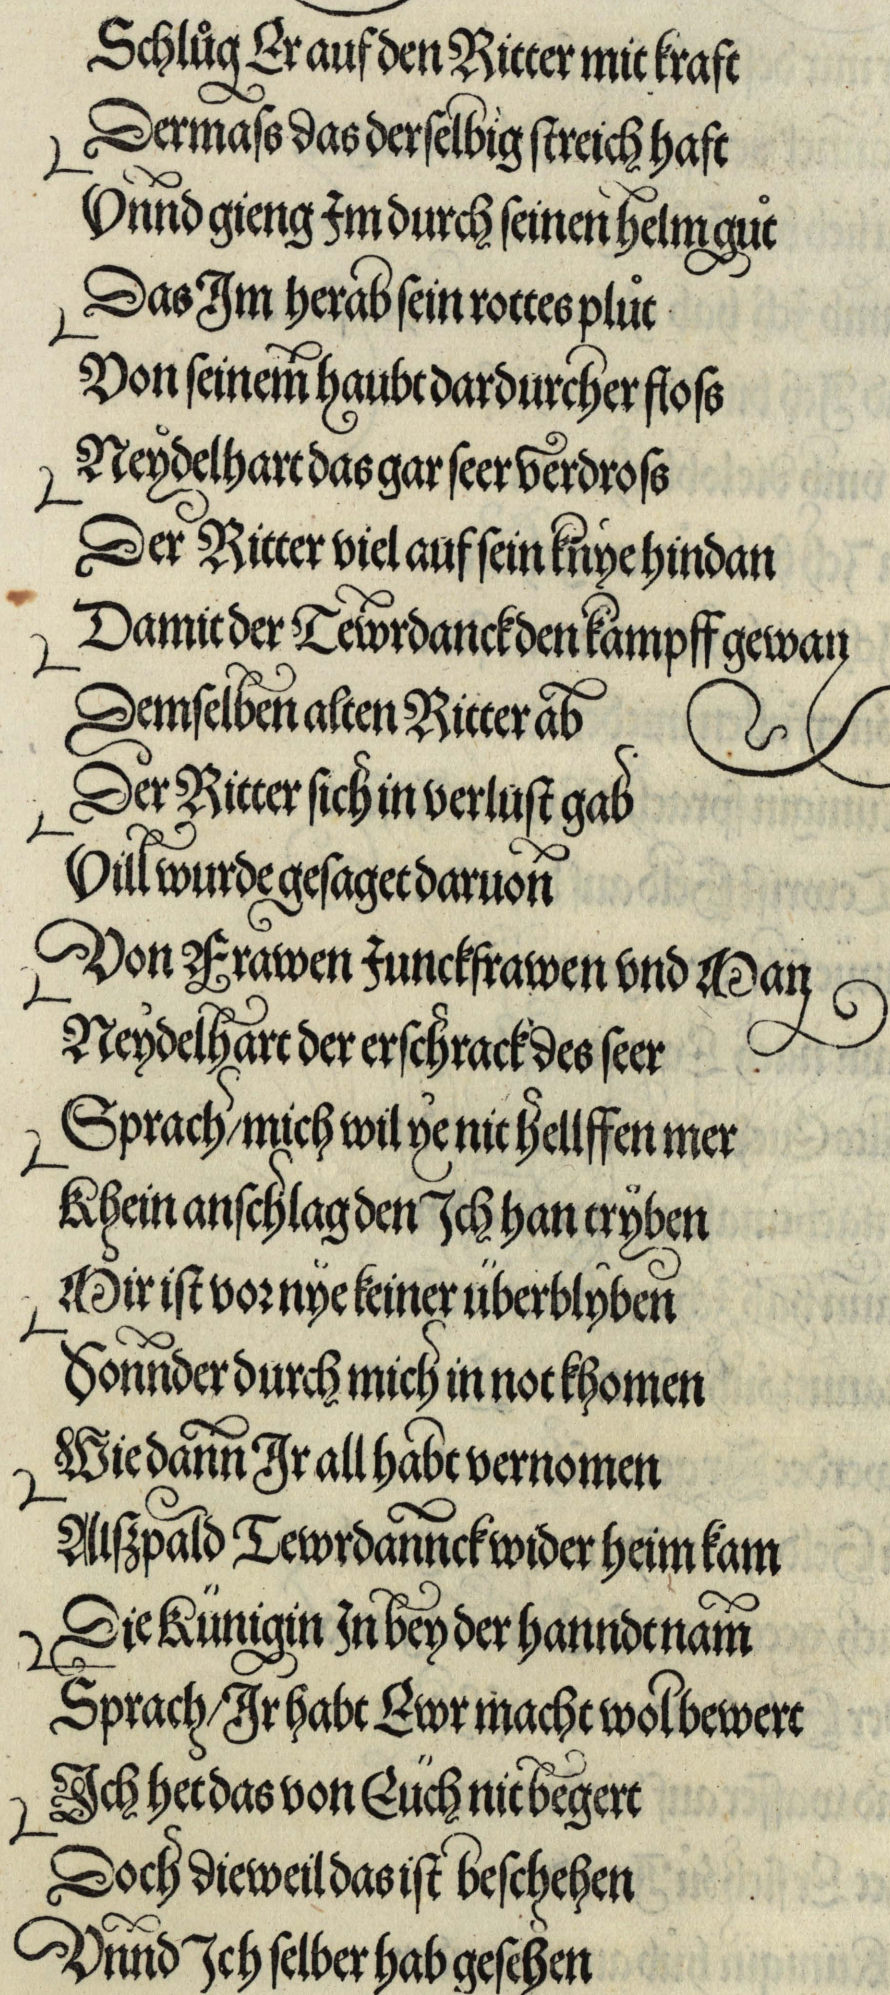 Schlůg Er auf den Ritter mit kraft
Dermaſs das derſelbig ſtreich haft
Vnnd gieng Im durch ſeinen helm gůt
Das Im herab ſein rottes plůt
Von ſeinem haubt dardurch er floſs
Neydelhart das gar ſeer verdroſs
Der Ritter viel auf ſein knye hindan
Damit der Tewrdanck den kampff gewan
Demſelben alten Ritter ab
Der Ritter ſich in verluſt gab
Vill wurde geſaget daruon
Von Frawen Junckfrawen vnd Man
Neydelhart der erſchrack des ſeer
Sprach/mich wil ye nit hellffen mer
Khein anſchlag den Ich han tryben
Mir iſt vor nye keiner überblyben
Sonnder durch mich in not khomen
Wie dann Ir all habt vernomen
Alſzpald Tewrdannck wider heim kam
Die Künigin In bey der hanndt nam
Sprach/Ir habt Ewr macht wol bewert
Ich het das von Eüch nit begert
Doch dieweil das iſt beſchehen
Vnnd Ich ſelber hab geſehen